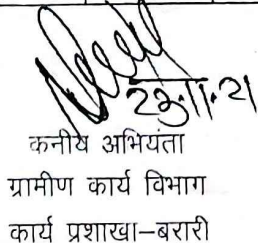 23.11.21
कनीय अभियंता
ग्रामीण कार्य विभाग
कार्य प्रशाखा–बरारी